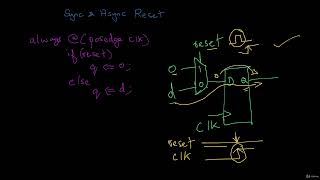 Sync & Async Reset
always @(posedge clk)
if(reset)
q <= 0;
else
q <= d;
reset
0
1
d
0
D Q
Clk
reset
clk